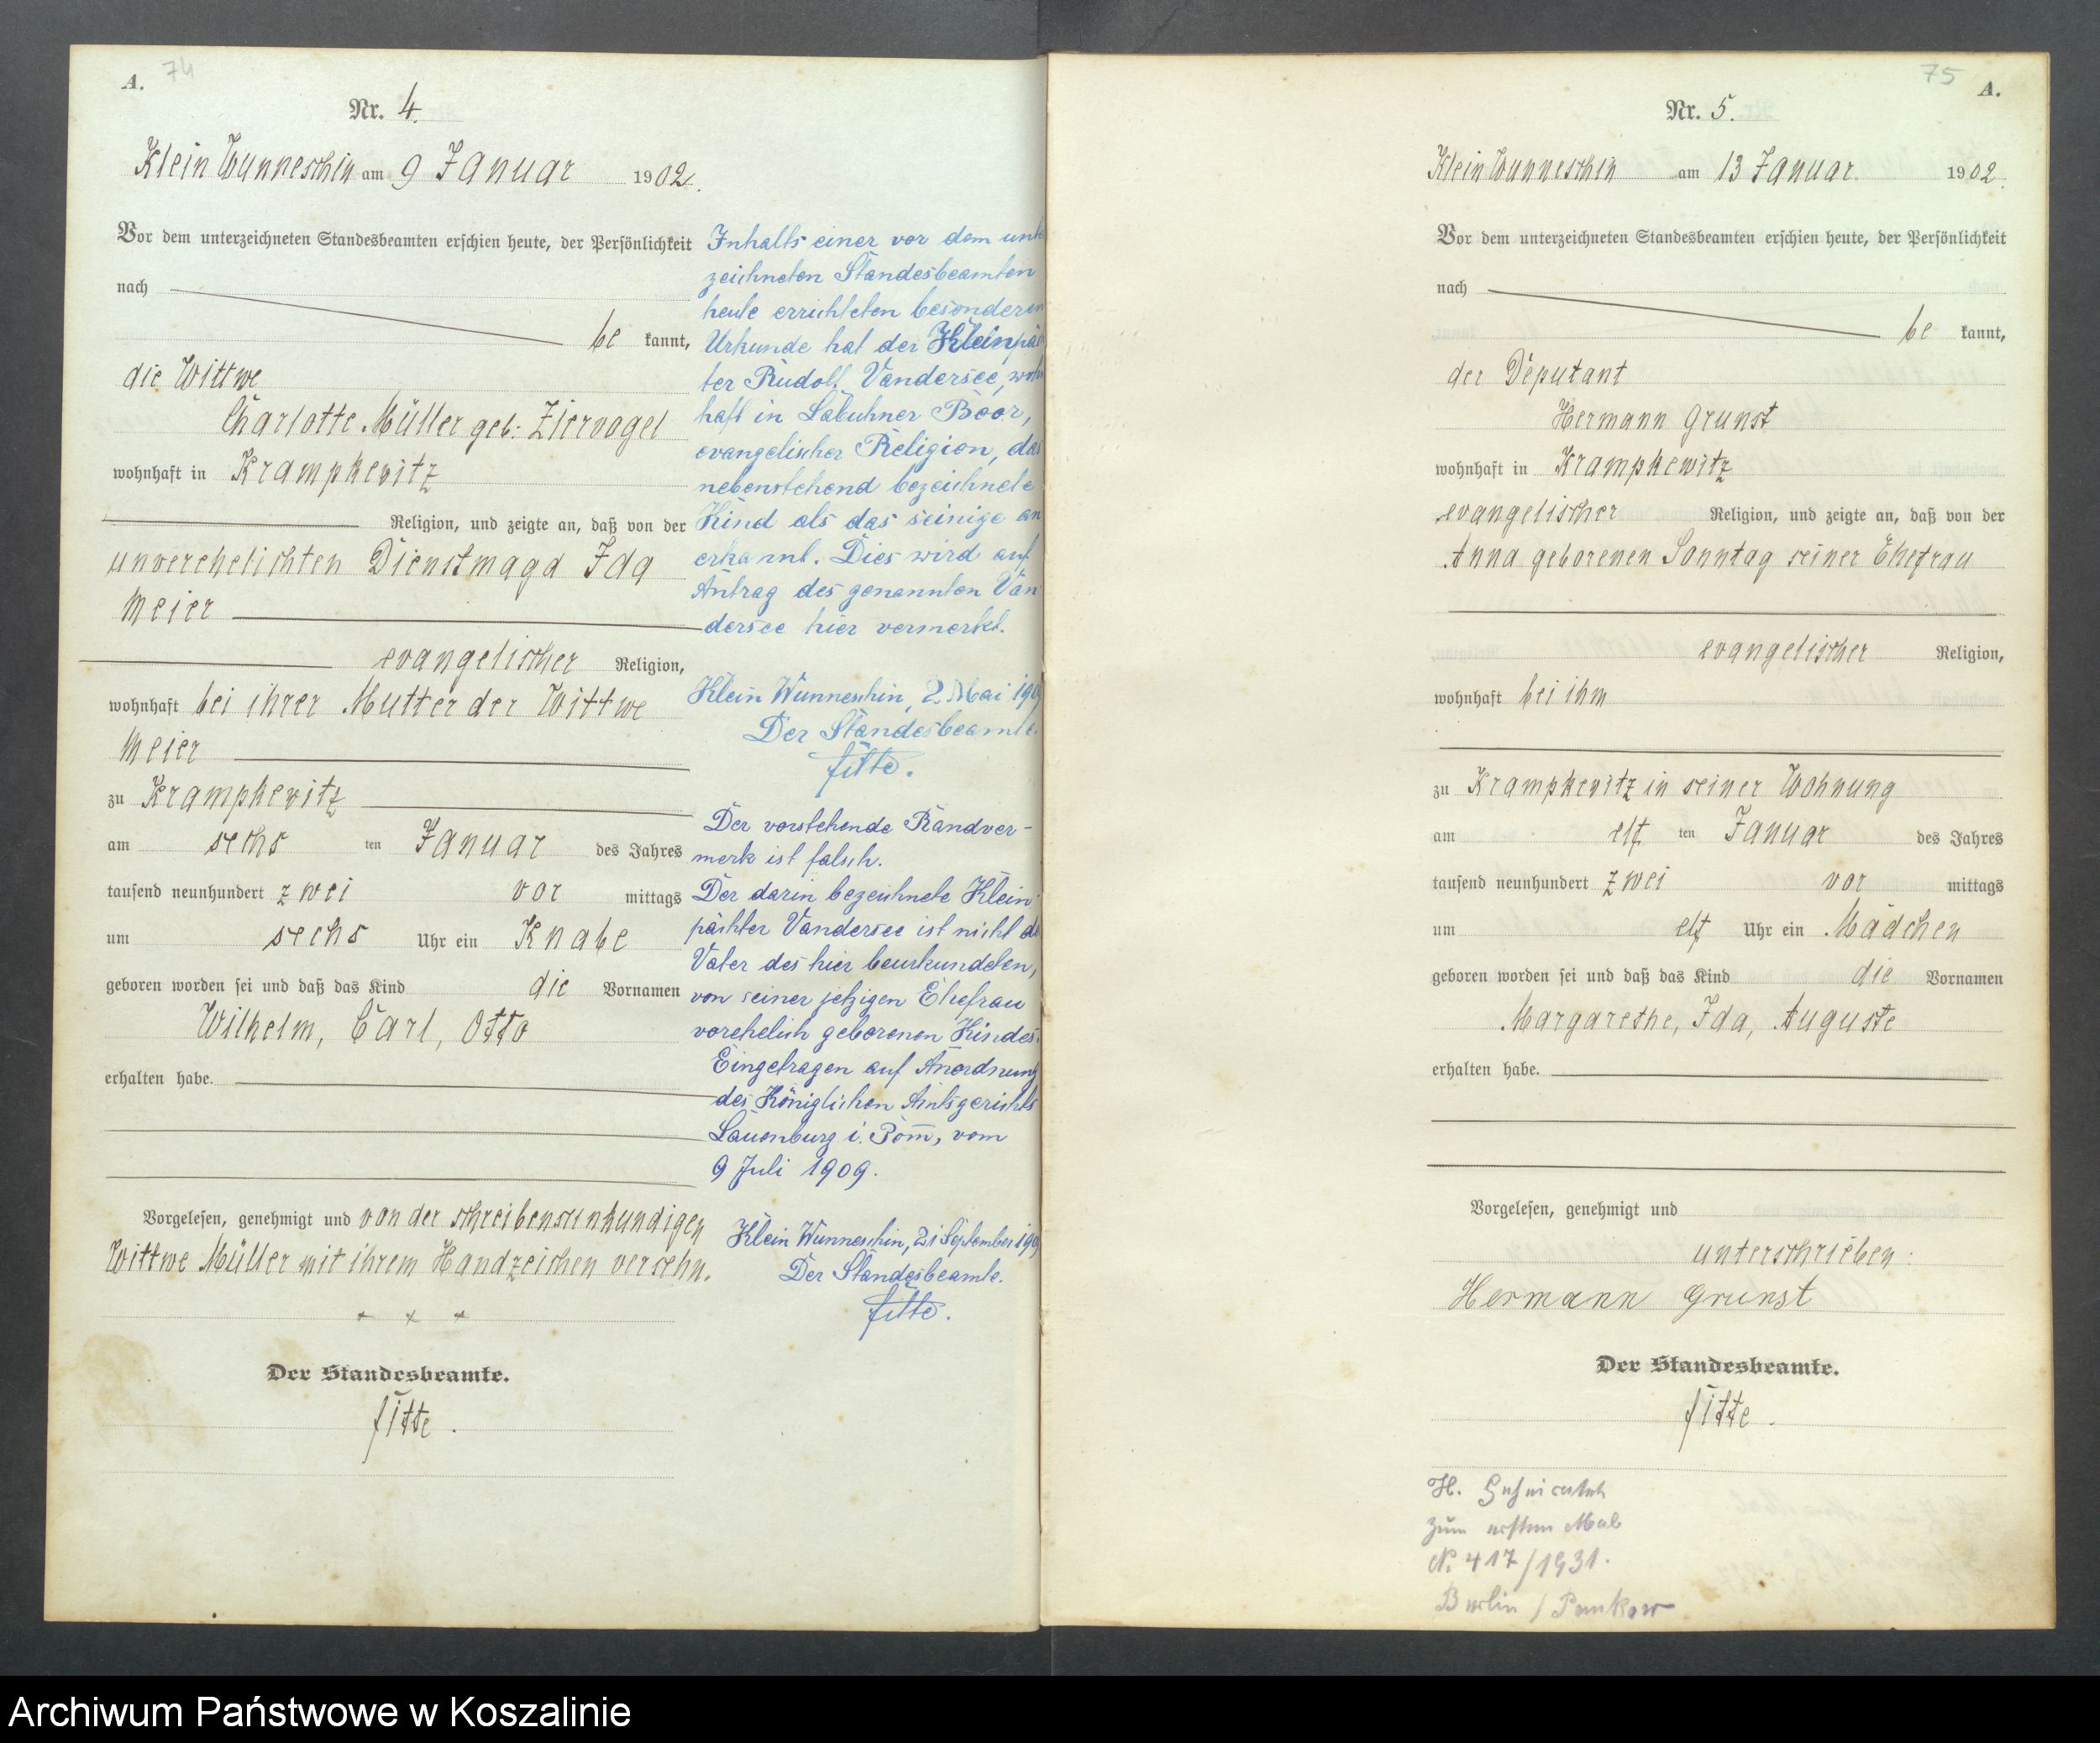 A. 74
Nr. 4.
Klein Wunneschin am 9 Januar 1902.
Vor dem unterzeichneten Standesbeamten erschien heute, der Persönlichkeit
nach
be kannt,
die Wittwe
Charlotte Müller geb: Ziervogel
wohnhaft in Krampkewitz
Religion, und zeigte an, daß von der
unverehelichten Dienstmagd Ida
Meier
evangelischer Religion,
wohnhaft bei ihrer Mutter der Wittwe
Meier
zu Krampkewitz
am sechs ten Januar des Jahres
tausend neunhundert zwei vor mittags
um sechs Uhr ein Knabe
geboren worden sei und daß das Kind die Vornamen
Wilhelm, Carl, Otto
erhalten habe.
Vorgelesen, genehmigt und von der schreibensunkundigen
Wittwe Müller mit ihrem Handzeichen versehn.
+ x +
Der Standesbeamte.
Fitte.
Inhalts einer vor dem unter
zeichneten Standesbeamten
heute errichteten besonderen
Urkunde hat der Kleinpäch
ter Rudolf Vandersee, wohn
haft in Labuhner Boor,
evangelischer Religion, das
nebenstehend bezeichnete
Kind als das seinige an
erkannt. Dies wird auf
Antrag des genannten Van
dersee hier vermerkt.
Klein Wunneschin, 2. Mai 190
Der Standesbeamte.
Fitte.
Der vorstehende Randver-
merk ist falsch.
Der darin bezeichnete Klein-
pächter Vandersee ist nicht d
Vater des hier beurkundeten,
von seiner jetzigen Ehefrau
vorehelich geborenen Kindes.
Eingetragen auf Anordnung
des Königlichen Amtsgerichts
Lauenburg i. Pom̅, vom
9 Juli 1909.
Klein Wunneschin, 21 September 190
Der Standesbeamte.
Fitte.
75 A.
Nr. 5.
Klein Wunneschin am 13 Januar. 1902.
Vor dem unterzeichneten Standesbeamten erschien heute, der Persönlichkeit
nach
be kannt,
der Deputant
Hermann Grunst
wohnhaft in Krampkewitz
evangelischer Religion, und zeigte an, daß von der
Anna geborenen Sonntag seiner Ehefrau
evangelischer Religion,
wohnhaft bei ihm
zu Krampkewitz in seiner Wohnung
am elf ten Januar des Jahres
tausend neunhundert zwei vor mittags
um elf Uhr ein Mädchen
geboren worden sei und daß das Kind die Vornamen
Margarethe, Ida, Auguste
erhalten habe.
Vorgelesen, genehmigt und
unterschrieben:
Hermann Grunst
Der Standesbeamte.
Fitte.
H.
zum ersten Mal
N. 417/1931.
Berlin / Pankow
Archiwum Państwowe w Koszalinie